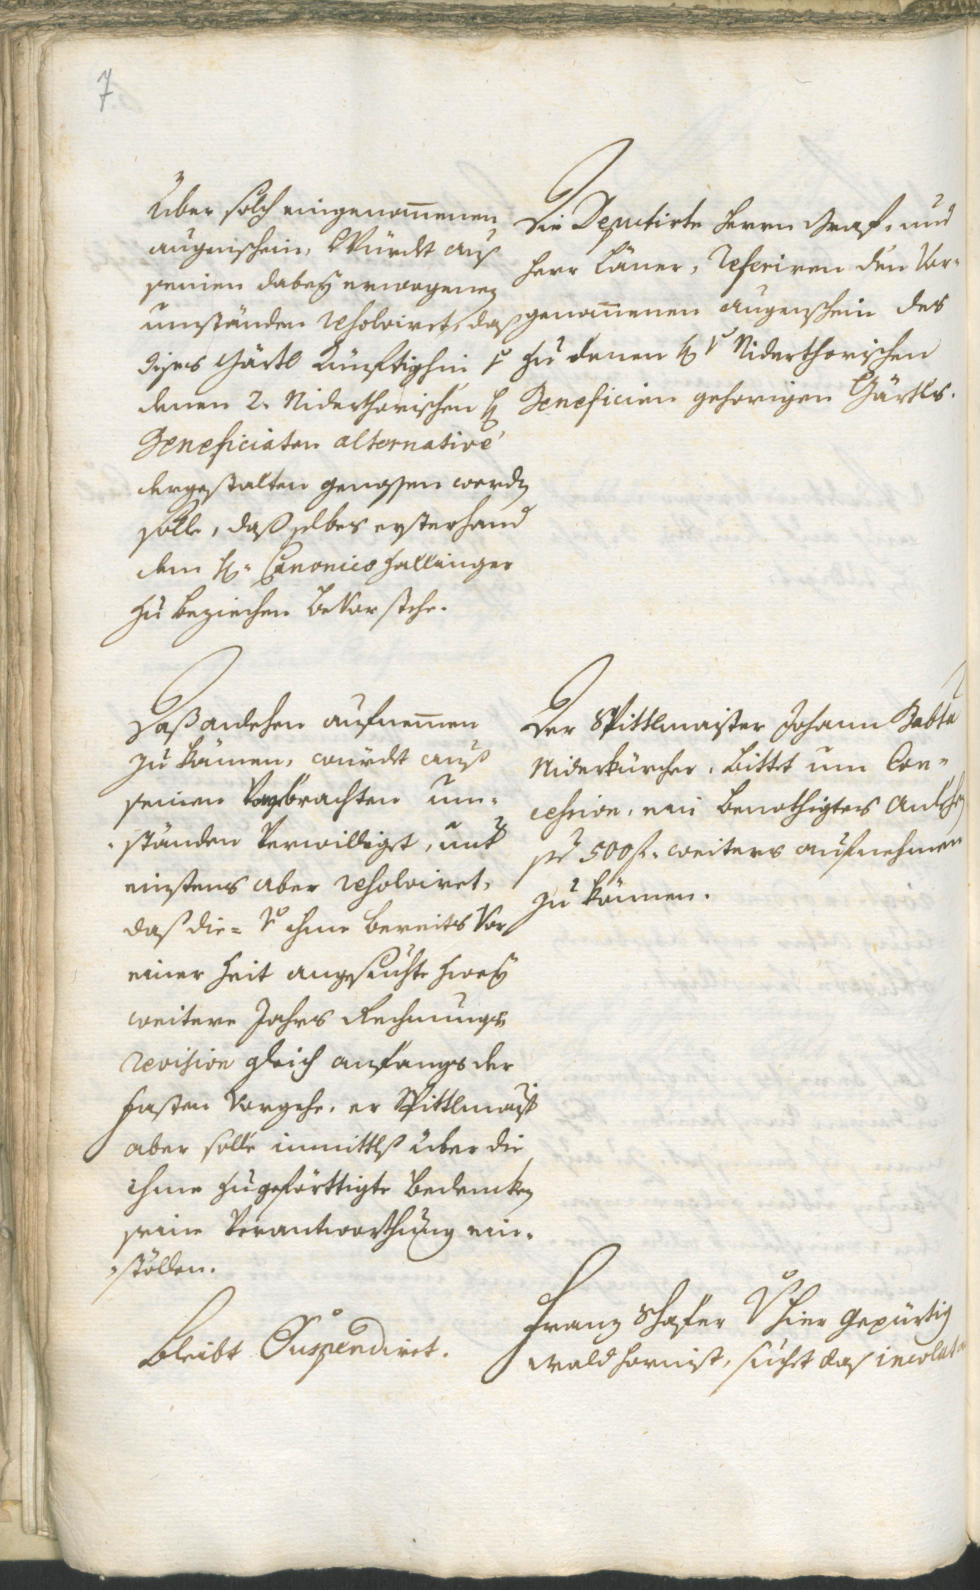 7
Die Deputirte Herrn Graf, und
Herr Läner, Referiren den Vor-
genommenen augenschein des
zu denen Niderthorischen
Beneficien gehörigen Gärtls.
Über solch eingenommenen
augenschein, Würdt aus
seinen dabey erwogenen
umständen resolviret, das
dises Gärtl Künftighin
denen 2. Niderthorischen
Beneficiaten alternative
dergestalten genossen werden
solle, daß selbes ersterhand
dem H. Canonico Hallinger
zu beziehen bevorstehe.
Der Spittlmaister Johann Babta
Niderkürcher, Bittet um Con-
cession, ein benöthigtes Anlehen
per 500 f. weiters aufnehmen
zu können.
Daß anlehen aufnemmen
zu können, würdt auß
seinen Vorgebrachten um-
ständen Verwilliget, unter
einstens aber resolviret,
daß die ihme bereits Vor
einer Zeit angesuchte zwey
weitere Jahrs Rechnungs
Revision gleich anfangs der
Fasten Vorgehe, er Spittlmaister
aber solle inmittlß über die
ihme zugeförttigte Bedencken
seine Verantworthung ein-
stöllen.
Franz Schafer hier Gepürtig
Waldhornist, suchet das incolat
Bleibt Suspendiret.